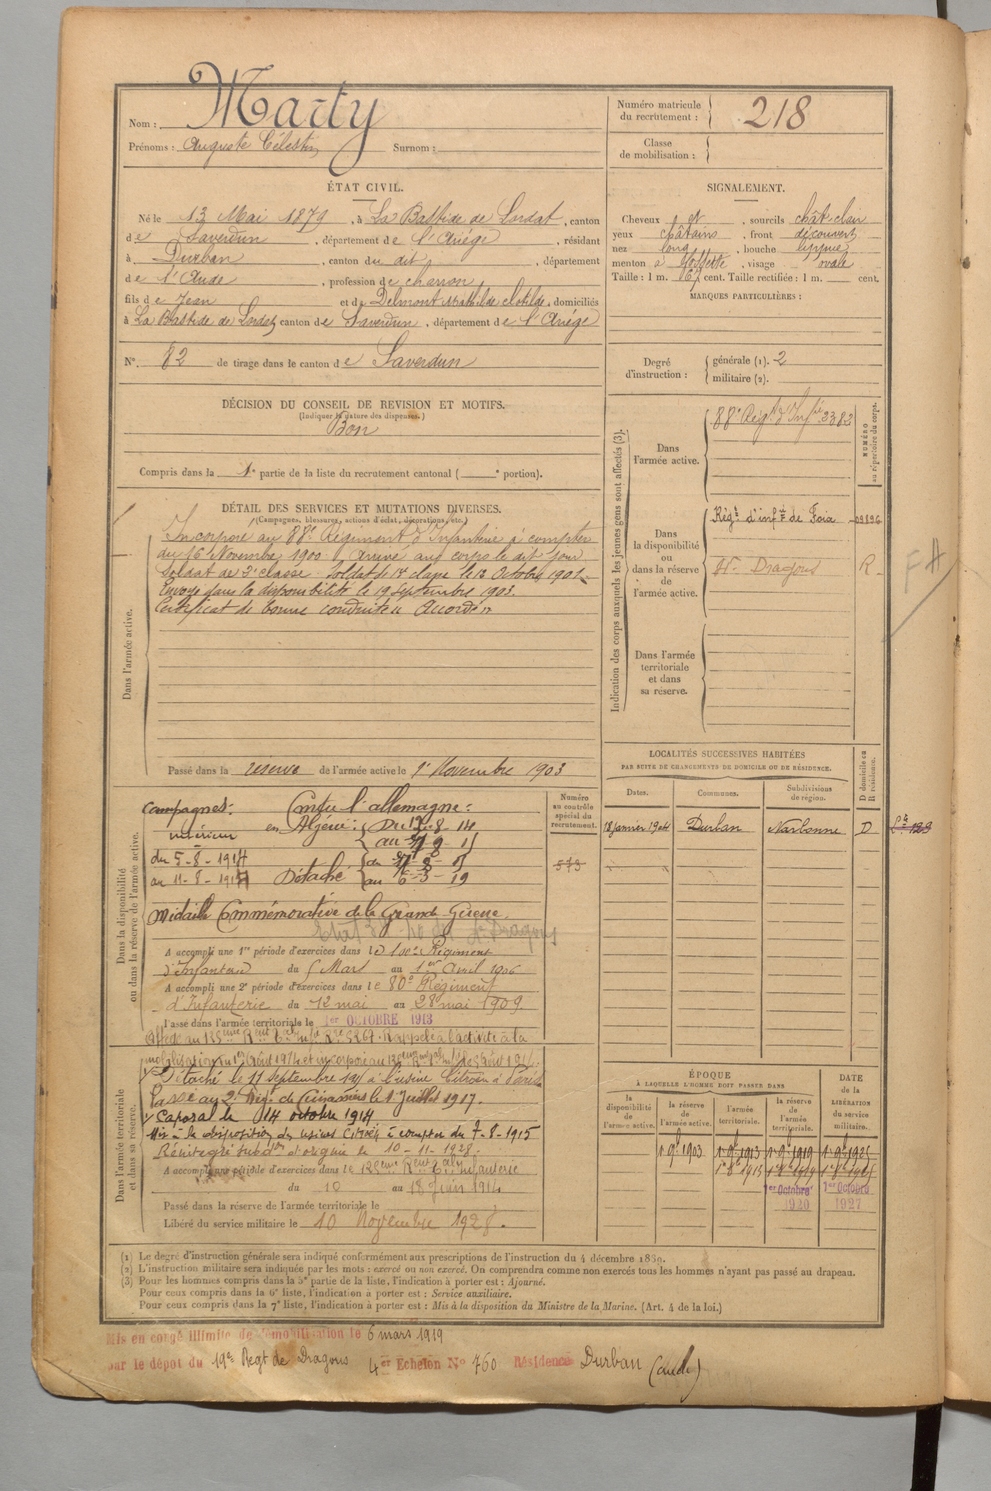 Nom : Marty
Prénoms : Auguste Célestin Surnom :
Numéro matricule du recrutement : 218
Classe de mobilisation :
ÉTAT CIVIL.
Né le 13 Mai 1879, à La Bastide de Lordat, canton
de Saverdun, département de l'Ariège, résidant
à Durban, canton du dit, département
de l'Aude, profession de charron
fils de Jean et de Delmont Mathilde Clotilde, domiciliés
à La Bastide de Lordat, canton de Saverdun, département de l'Ariège
N° 82 de tirage dans le canton de Saverdun
SIGNALEMENT.
Cheveux et, sourcils chât. clair
yeux châtains, front découvert
nez long, bouche lippue
menton à fossette, visage ovale
Taille : 1 m. 67 cent. Taille rectifiée : 1 m. cent.
MARQUES PARTICULIÈRES :
Degré d'instruction : générale (1). 2
militaire (2).
DÉCISION DU CONSEIL DE REVISION ET MOTIFS.
(Indiquer la nature des dispenses.)
Bon
Compris dans la 1e partie de la liste du recrutement cantonal ( e portion).
DÉTAIL DES SERVICES ET MUTATIONS DIVERSES.
(Campagnes, blessures, actions d'éclat, décorations, etc.)
Dans l'armée active.
Incorporé au 88e Régiment d'Infanterie à compter
du 16 Novembre 1900. Arrivé au corps le dit jour
Soldat de 2e classe. Soldat de 1e classe le 12 Octobre 1901.
Envoyé dans la disponibilité le 19 septembre 1903.
Certificat de bonne conduite « Accordé »
Passé dans la réserve de l'armée active le 1er Novembre 1903
Indication des corps auxquels les jeunes gens sont affectés (3).
NUMÉRO au répertoire du corps.
Dans l'armée active.
88e Régt d'Infie 3382
Dans la disponibilité ou dans la réserve de l'armée active.
Régt d'infie de Foix 09896
Dragons R
FA
Dans l'armée territoriale et dans sa réserve.
LOCALITÉS SUCCESSIVES HABITÉES
PAR SUITE DE CHANGEMENTS DE DOMICILE OU DE RÉSIDENCE.
D domicile ou R résidence.
Dates. Communes. Subdivisions de région.
18 janvier 1904 Durban Narbonne D
Dans la disponibilité ou dans la réserve de l'armée active.
Numéro au contrôle spécial du recrutement.
573
Campagnes : Contre l'allemagne :
intérieur en Algérie :
du 5-8-1914
au 11-8-1914 Détaché au 6-3-19
Médaille Commémorative de la Grande Guerre
A accompli une 1re période d'exercices dans le 100e Régiment
d'Infanterie du 5 Mars au 1er Avril 1906
A accompli une 2e période d'exercices dans le 80e Régiment
d'Infanterie du 12 mai au 28 mai 1909
Passé dans l'armée territoriale le 1er OCTOBRE 1913
Rappelé à l'activité à la
Dans l'armée territoriale et dans sa réserve.
Détaché le 11 septembre à l'usine Citroën à Paris
Passé au 2e Régt de Cuirassiers le 1 Juillet 1917.
Caporal le 14 octobre 1914
Mis à la disposition des usines Citroën à compter du 7-8-1915
A accompli une période d'exercices dans le Infanterie
du 10 au 18 Juin 1914
Passé dans la réserve de l'armée territoriale le
Libéré du service militaire le 10 Novembre 1928.
ÉPOQUE
À LAQUELLE L'HOMME DOIT PASSER DANS
DATE de la LIBÉRATION du service militaire.
la disponibilité de l'armée active. la réserve de l'armée active. l'armée territoriale. la réserve de l'armée territoriale.
1er Octobre 1920 1er Octobre 1927
(1) Le degré d'instruction générale sera indiqué conformément aux prescriptions de l'instruction du 4 décembre 1889.
(2) L'instruction militaire sera indiquée par les mots : exercé ou non exercé. On comprendra comme non exercés tous les hommes n'ayant pas passé au drapeau.
(3) Pour les hommes compris dans la 5e partie de la liste, l'indication à porter est : Ajourné.
Pour ceux compris dans la 6e liste, l'indication à porter est : Service auxiliaire.
Pour ceux compris dans la 7e liste, l'indication à porter est : Mis à la disposition du Ministre de la Marine. (Art. 4 de la loi.)
Mis en congé illimité de démobilisation le 6 mars 1919
par le dépôt du 19e Regt de Dragons 4er Échelon No 760 Résidence Durban (aude)